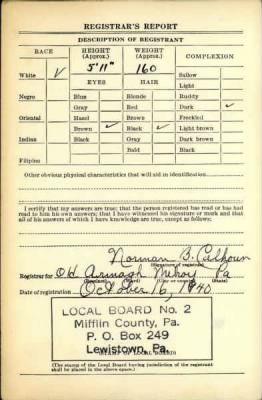 REGISTRAR'S REPORT
DESCRIPTION OF REGISTRANT
RACE HEIGHT (Approx.) WEIGHT (Approx.) COMPLEXION
5'11" 160
White ✓ EYES HAIR Sallow
Light
Negro Blue Blonde Ruddy
Gray Red Dark ✓
Oriental Hazel Brown Freckled
Brown ✓ Black ✓ Light brown
Indian Black Gray Dark brown
Bald Black
Filipino
Other obvious physical characteristics that will aid in identification
I certify that my answers are true; that the person registered has read or has had
read to him his own answers; that I have witnessed his signature or mark and that
all of his answers of which I have knowledge are true, except as follows:
Norman B. Calhoun
(Signature of registrar)
Registrar for Old Armagh Pa
(City or county) (State)
Date of registration October 16, 1940
LOCAL BOARD No. 2
Mifflin County, Pa.
P. O. Box 249
Lewistown, Pa.
(The stamp of the Local Board having jurisdiction of the registrant
shall be placed in the above space.)